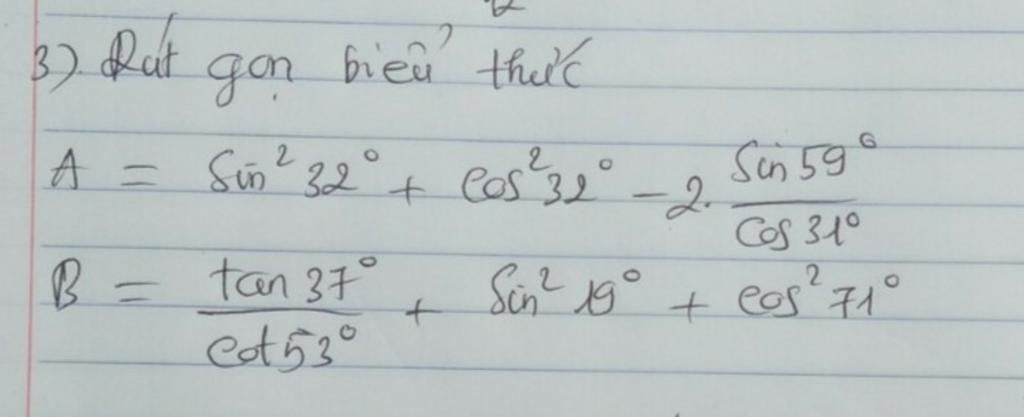 3). Rút gọn biểu thức
A = Sin² 32° + cos² 32° - 2. Sin 59° / Cos 31°
B = tan 37° / cot 53° + Sin² 19° + cos² 71°